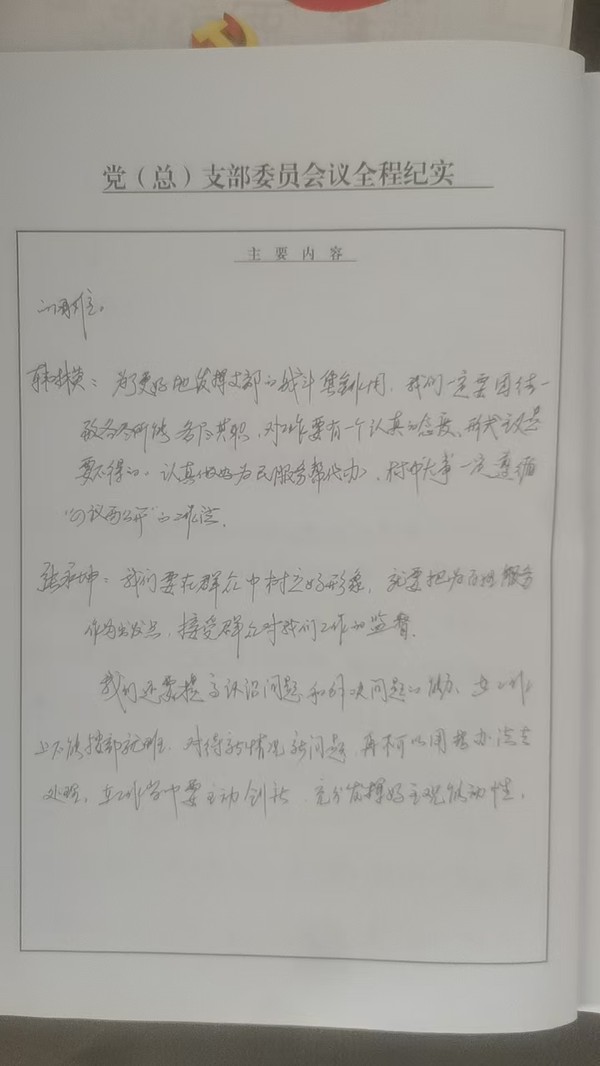 党（总）支部委员会议全程纪实
主要内容
为了更好地发挥支部的战斗堡垒作用，我们一定要团结一
致各尽所能各尽其职，对工作要有一个认真的态度、形式主义是
要不得的，认真做好为民服务帮代办，村中大事一定遵循
“四议两公开”的工作法。
坤：我们要在群众中树立好形象，就要把为百姓服务
作为出发点，接受群众对我们工作的监督。
我们还要提高认识问题和解决问题的能力、在工作
上不能按部就班，对待新情况新问题，再不可以用老办法去
处理，在工作当中要主动创新，充分发挥好主观能动性。